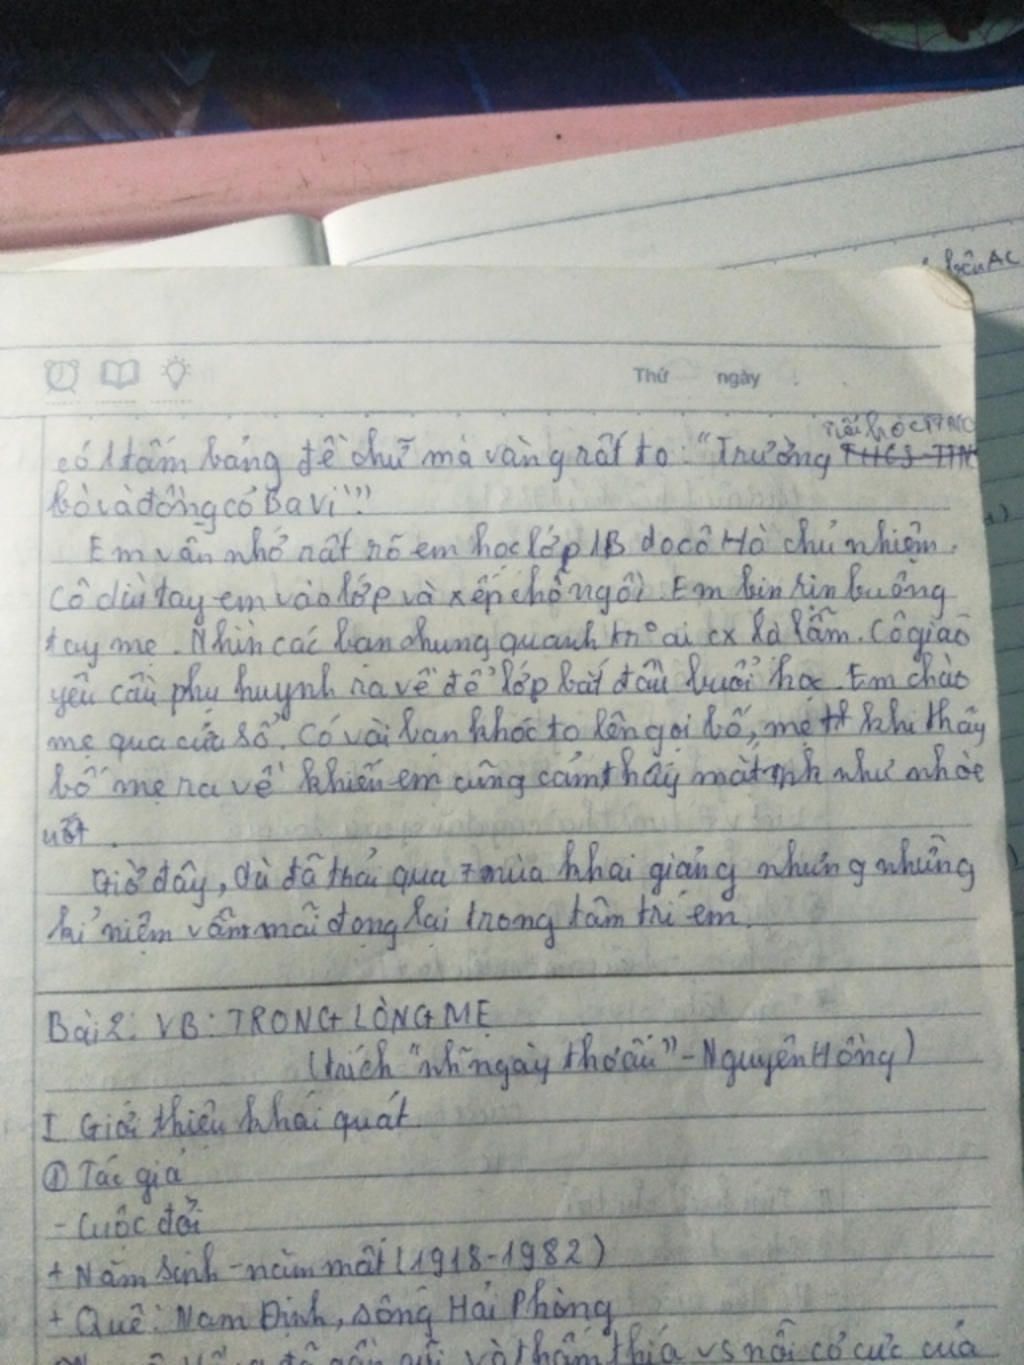 bên AC
Thứ ngày
tiểu học TTNC
có 1 tấm bảng đề chữ mà vàng rất to: "Trường THCS TTN
bò và đồng cỏ Ba Vì".
Em vẫn nhớ rất rõ em học lớp 1B do cô Hà chủ nhiệm.
Cô dìu tay em vào lớp và xếp chỗ ngồi. Em bịn rịn buông
tay mẹ. Nhìn các bạn chung quanh trơ ai cx lạ lẫm. Cô giáo
yêu cầu phụ huynh ra về để lớp bắt đầu buổi học. Em chào
mẹ qua cửa sổ. Có vài bạn khóc to lên gọi bố, mẹ khi thấy
bố mẹ ra về khiến em cũng cảm thấy mắt mk như nhòe
ướt.
Giờ đây, dù đã trải qua 7 mùa khai giảng nhưng những
kỉ niệm vẫn mãi đọng lại trong tâm trí em.
Bài 2: VB: TRONG LÒNG MẸ
(trích "nh~ ngày thơ ấu" - Nguyên Hồng)
I Giới thiệu khái quát.
① Tác giả
- Cuộc đời
+ Năm sinh - năm mất (1918-1982)
+ Quê: Nam Định, sống Hải Phòng
gần gũi và thấm thía vs nỗi cơ cực của